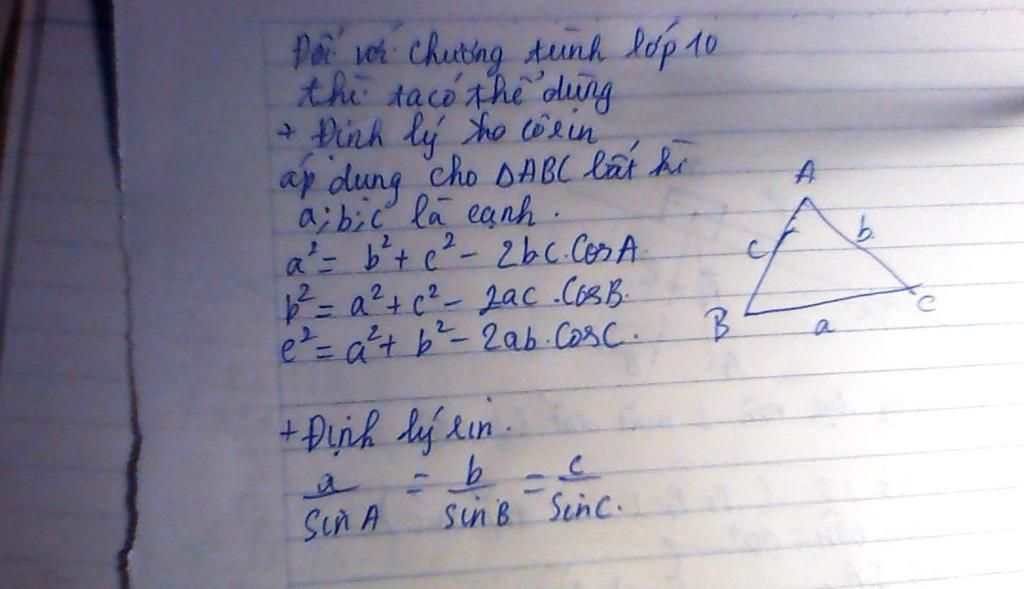 Đối với chương trình lớp 10
thì ta có thể dùng
+ Định lý cô sin
áp dụng cho ΔABC bất kì
a; b; c là cạnh.
a² = b² + c² - 2bc.CosA
b² = a² + c² - 2ac.CosB.
c² = a² + b² - 2ab.CosC.
A
c b
B a C
+ Định lý sin.
a/SinA = b/SinB = c/SinC.